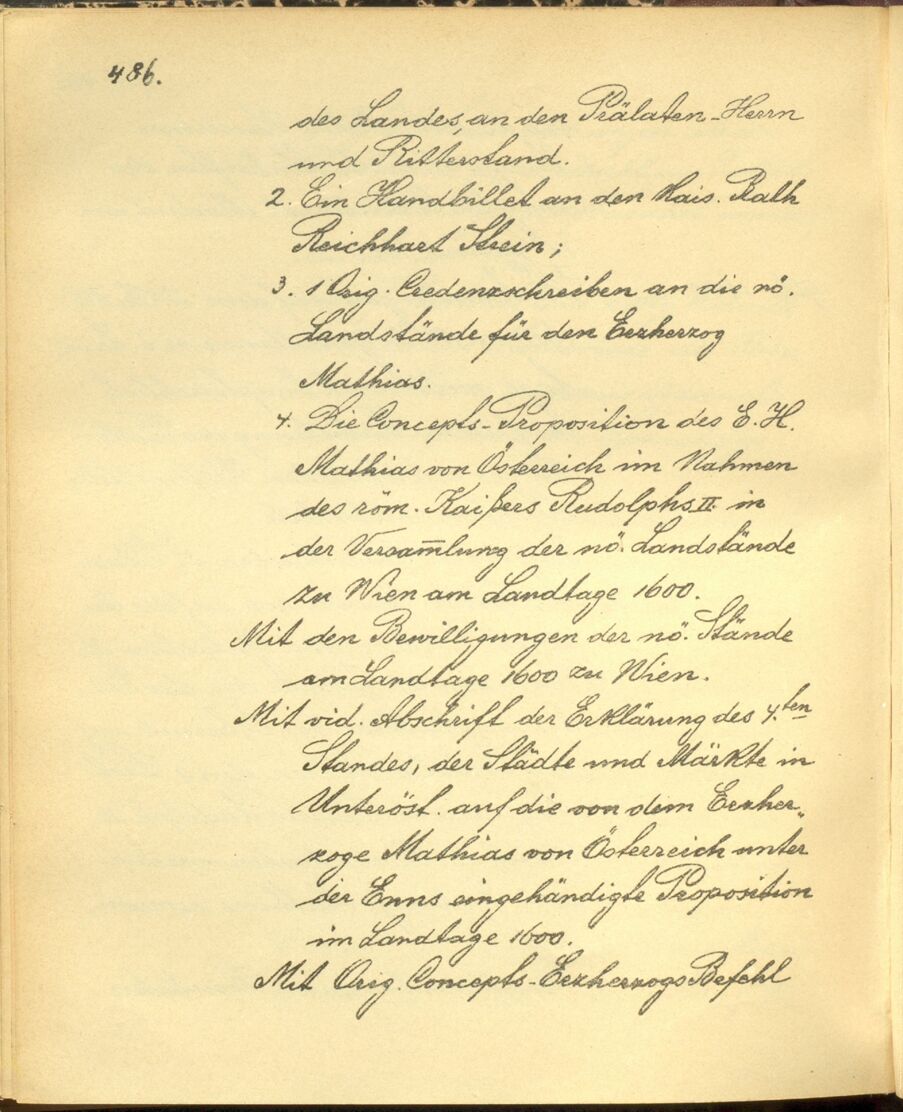 486.
des Landes, an den Prälaten-Herrn
und Ritterstand.
2. Ein Handbillet an den Kais. Rath
Reichhart Strein;
3. 1 Orig. Credenzschreiben an die nö.
Landstände für den Erzherzog
Mathias.
4. Die Concepts-Proposition des E. H.
Mathias von Österreich im Nahmen
des röm. Kaißers Rudolphs II. in
der Versam̅lung der nö. Landstände
zu Wien am Landtage 1600.
Mit den Bewilligungen der nö. Stände
am Landtage 1600 zu Wien.
Mit vid. Abschrift der Erklärung des 4.ten
Standes, der Städte und Märkte in
Unteröst. auf die von dem Erzher„
zoge Mathias von Österreich unter
der Enns eingehändigte Proposition
im Landtage 1600.
Mit Orig. Concepts-Erzherzogs Befehl